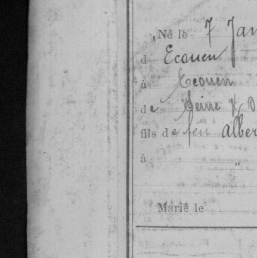 Né le 7 Jan
d Ecouen
à Ecouen
de Seine & O
fils de feu Alber
à "
Marié le